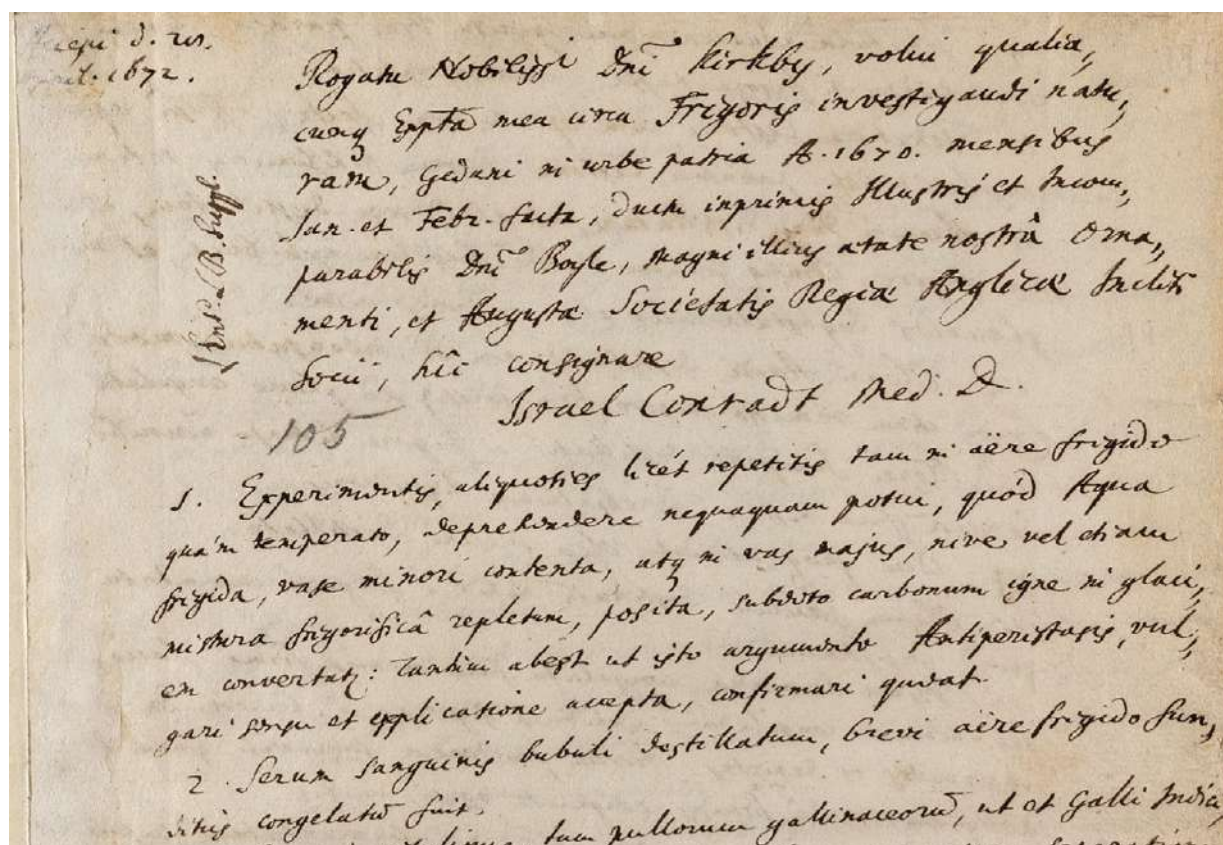 d. 20.
1672.
Rogatu Nobilissi Dni Kirkby, volui qualia„
cunq Expta mea circa Frigoris investigandi natu„
ram, Gedani in urbe patria A. 1670. mensibus
Jan. et Febr. facta, ductu inprimis Illustris et Incom„
parabilis Dni Boyle, magni illius ætate nostrâ Orna„
menti, et Augustæ Societatis Regiæ Anglicæ Incliti
Socii, hîc consignare
Israel Conradt Med. D.
B. Suppl.
105
1. Experimentis, aliquoties licét repetitis tam in aëre frigido
quám temperato, deprehendere nequaquam potui, quód Aqua
frigida, vase minori contenta, atq in vas majus, nive vel etiam
mistura frigorificâ repletum, posita, subdito carbonum igne in glaci„
em convertatr: Tantum abest ut isto argumento Antiperistasis, vul„
gari sensu et explicatione accepta, confirmari queat.
2. Serum sanguinis bubuli destillatum, brevi aëre frigido
congelatū fuit.
tam pullorum gallinaceorū, ut et Galli Indici,